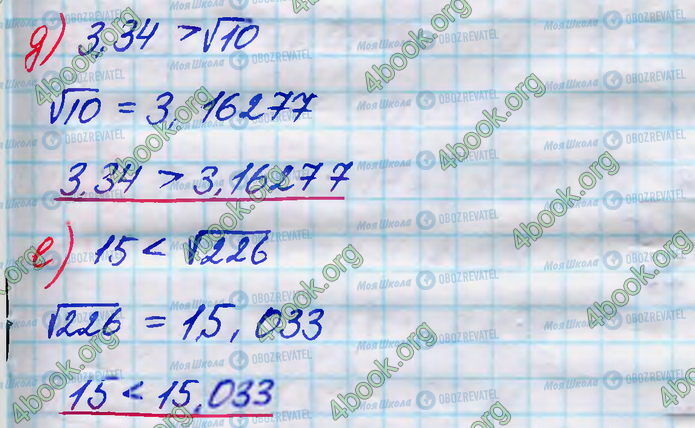 д) 3,34 > √10
√10 = 3,16277
3,34 > 3,16277
е) 15 < √226
√226 = 15,033
15 < 15,033
4book.org
МояШкола OBOZREVATEL